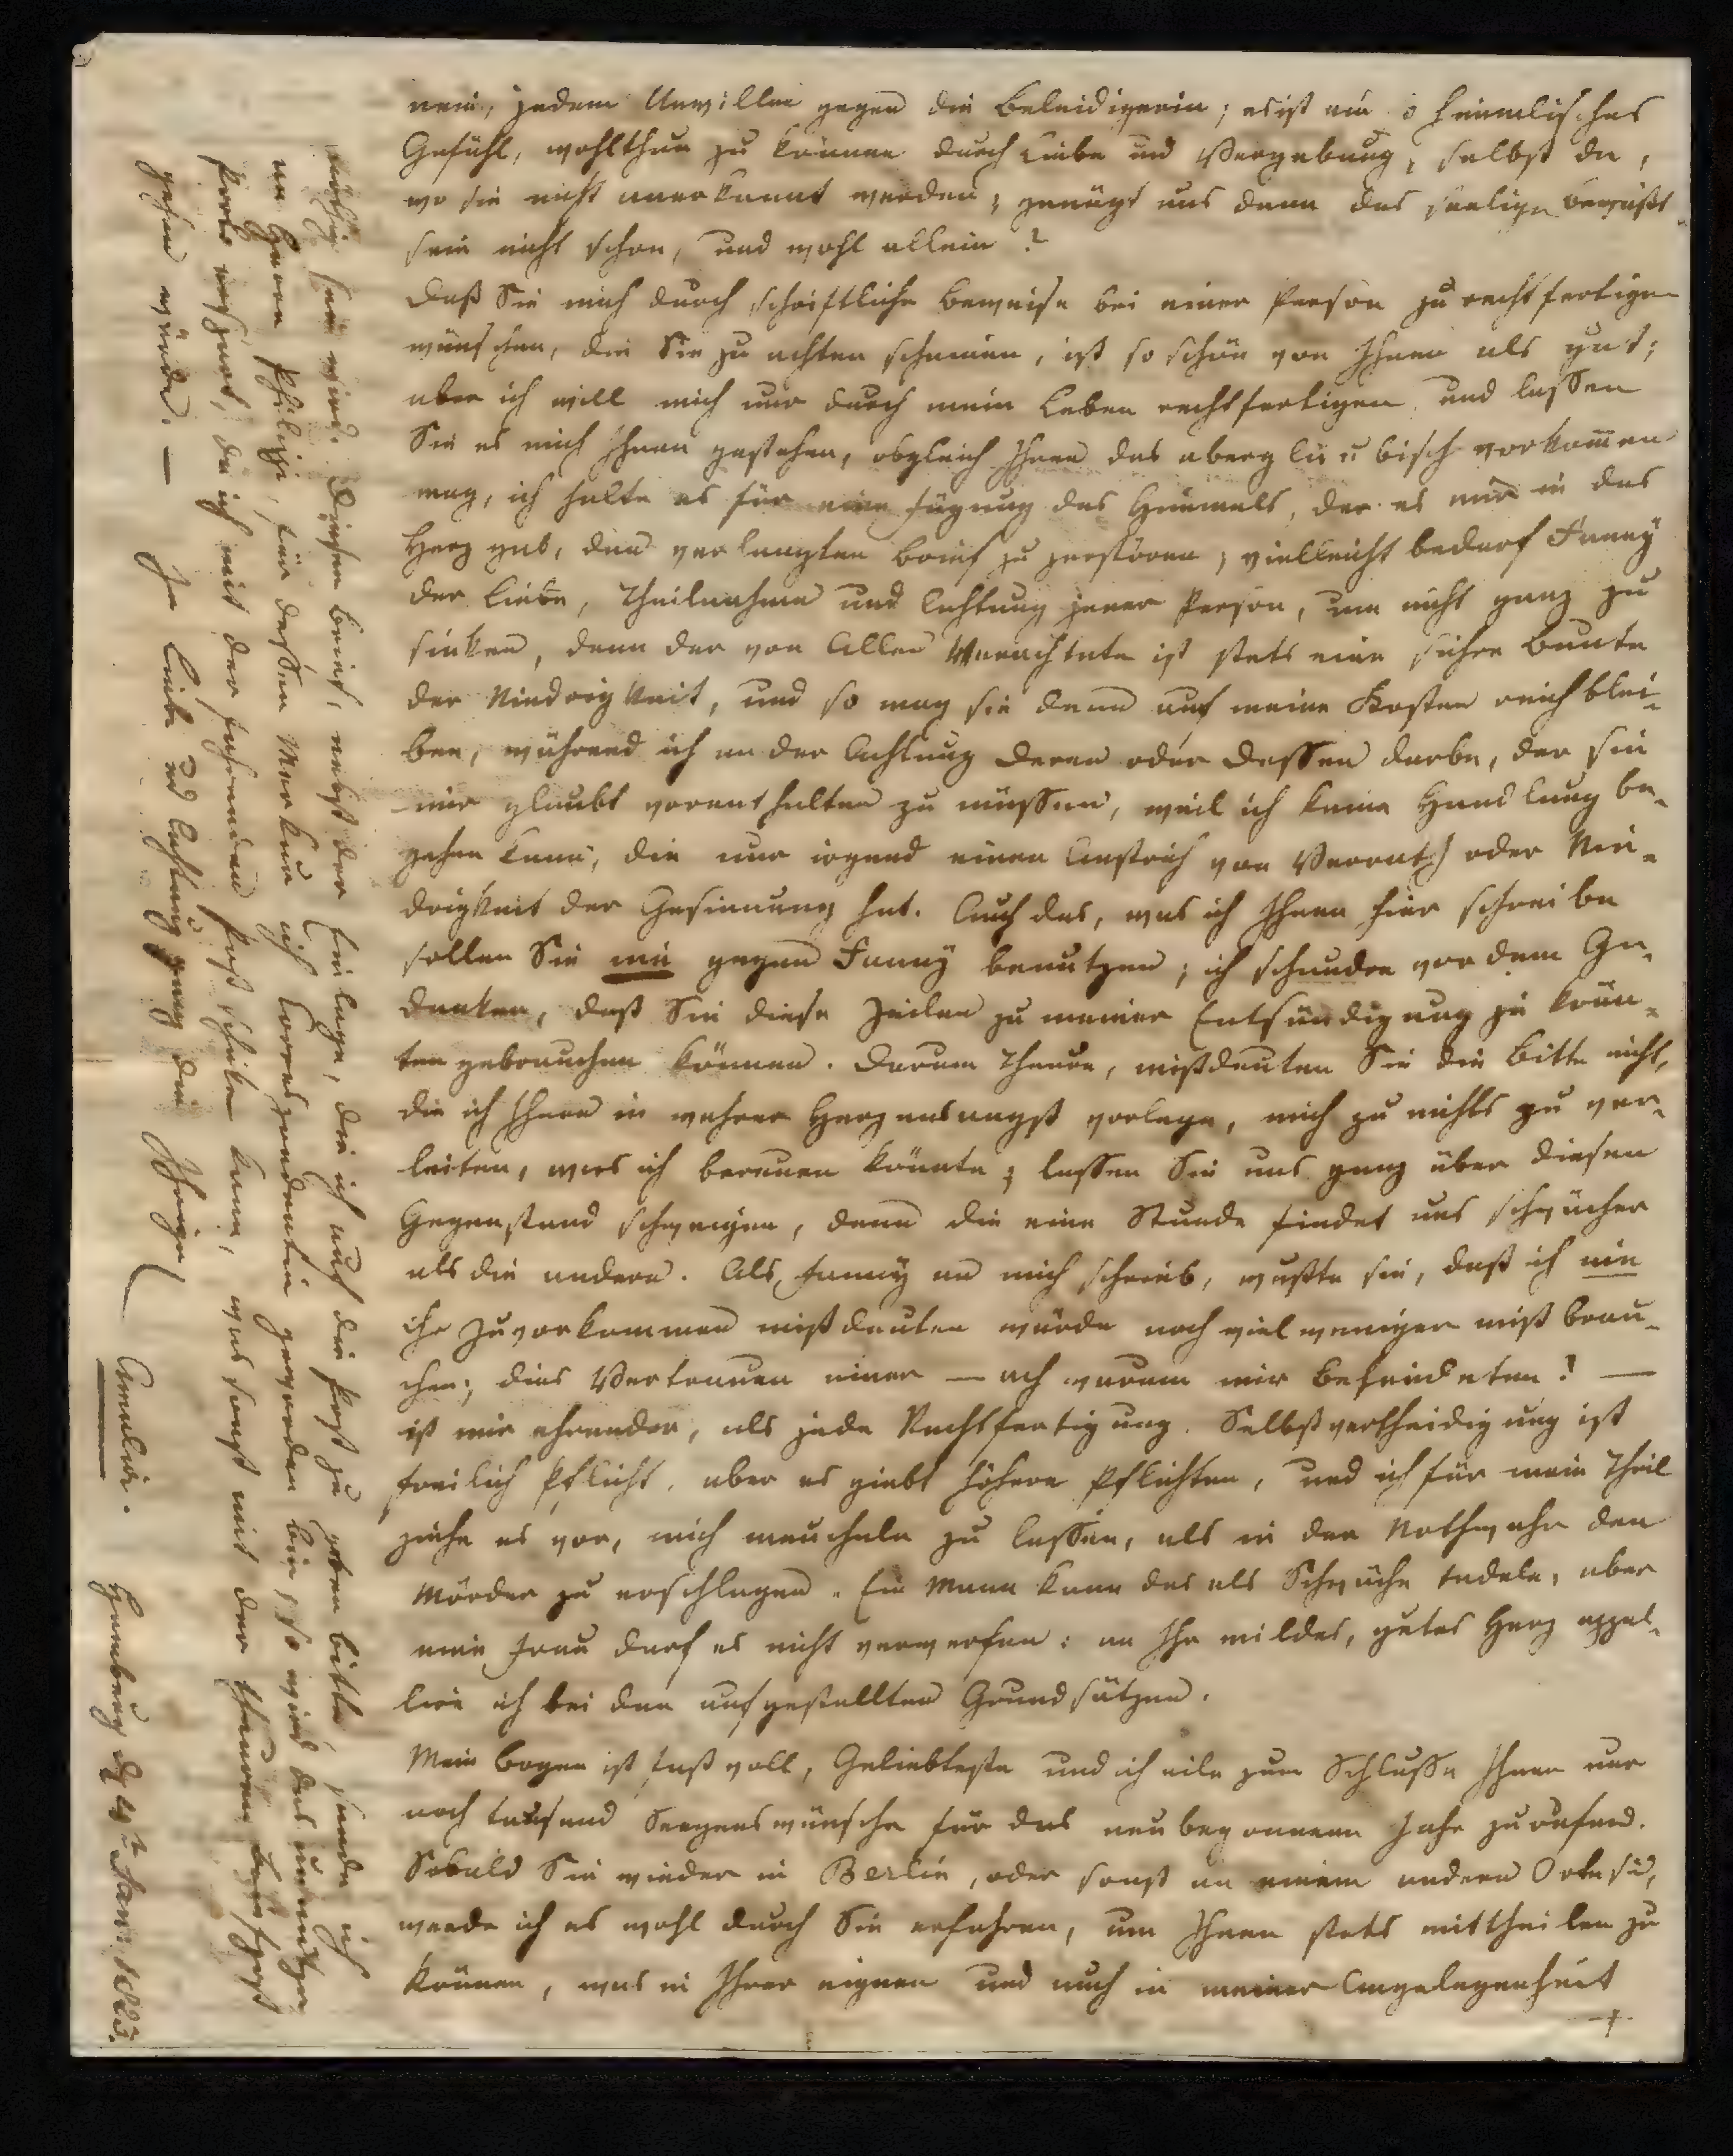 nein, jedem Unwillen gegen die Beleidigerin; es ist ein so himmlisches
Gefühl, wohlthun zu können durch Liebe und Vergebung, selbst da,
wo sie nicht anerkannt werden; genügt uns denn das seelige Bewußt
sein nicht schon, und wohl allein?
Daß Sie mich durch schriftliche Beweise bei einer Person zu rechtfertigen
wünschen, die Sie zu achten scheinen, ist so schön von Ihnen als gut;
aber ich will mich nur durch mein Leben rechtfertigen und lassen
Sie es mich Ihnen gestehen, obgleich Ihnen das abergläubisch vorkommen
mag, ich halte es für eine Fügung des Himmels, der es mir in das
Herz gab, den verlangten Brief zu zerstören; vielleicht bedarf Fanny
der Liebe, Theilnahme und Achtung jener Person, um nicht ganz zu
sinken, denn der von Allen Verachtete ist stets eine sichre Beute
der Niedrigkeit, und so mag sie denn auf meine Kosten reich blei-
ben, während ich an der Achtung derer oder dessen darbe, der sie
mir glaubt vorenthalten zu müssen, weil ich keine Handlung be-
gehen kann, die nur irgend einen Anstrich von Verrath oder Nie-
drigkeit der Gesinnung hat. Auch das, was ich Ihnen hier schreibe
sollen Sie nie gegen Fanny benutzen; ich schaudre vor dem Ge-
danken, daß Sie diese Zeilen zu meiner Entsündigung je könn-
ten gebrauchen können. Darum Theure, mißdeuten Sie die Bitte nicht,
die ich Ihnen in wahrer Herzensangst vorlege, mich zu nichts zu ver-
leiten, was ich bereuen könnte; lassen Sie uns ganz über diesen
Gegenstand schweigen, denn die eine Stunde findet uns schwächer
als die andere. Als Fanny an mich schrieb, wußte sie, daß ich nie
ihr Zuvorkommen mißdeuten würde noch viel weniger mißbrau-
chen; dies Vertrauen einer — ach warum mir Befeindeten! —
ist mir ehrender, als jede Rechtfertigung. Selbstvertheidigung ist
freilich Pflicht, aber es giebt höhere Pflichten, und ich für mein Theil
ziehe es vor, mich meucheln zu lassen, als in der Nothwehr den
Mörder zu erschlagen. Ein Mann kann das als Schwäche tadeln, aber
eine Frau darf es nicht verwerfen: an Ihr mildes, gutes Herz appel-
lire ich bei den aufgestellten Grundsätzen.
Mein Bogen ist fast voll, Geliebteste und ich eile zum Schlusse Ihnen nur
noch tausend Seegenswünsche für das neubegonnene Jahr zurufend.
Sobald Sie wieder in Berlin, oder sonst an einem andern Orte sind,
werde ich es wohl durch Sie erfahren, um Ihnen stets mittheilen zu
können, was in Ihrer eignen und auch in meiner Angelegenheit
+
nöthig sein wird. Diesen Brief, nebst der Einlage, die ich auf die Post zu geben bitte, sende ich
an Herrn Philippi, für dessen Merkur ich Correspondentin geworden bin, so wird das
Porto erspart, da ich mit der fahrenden Post schicken kann, was sonst mit der theuren
gehen würde. — In Liebe und Achtung ganz die Ihrige
Amalia.
Hamburg d. 4t Jan. 1823.